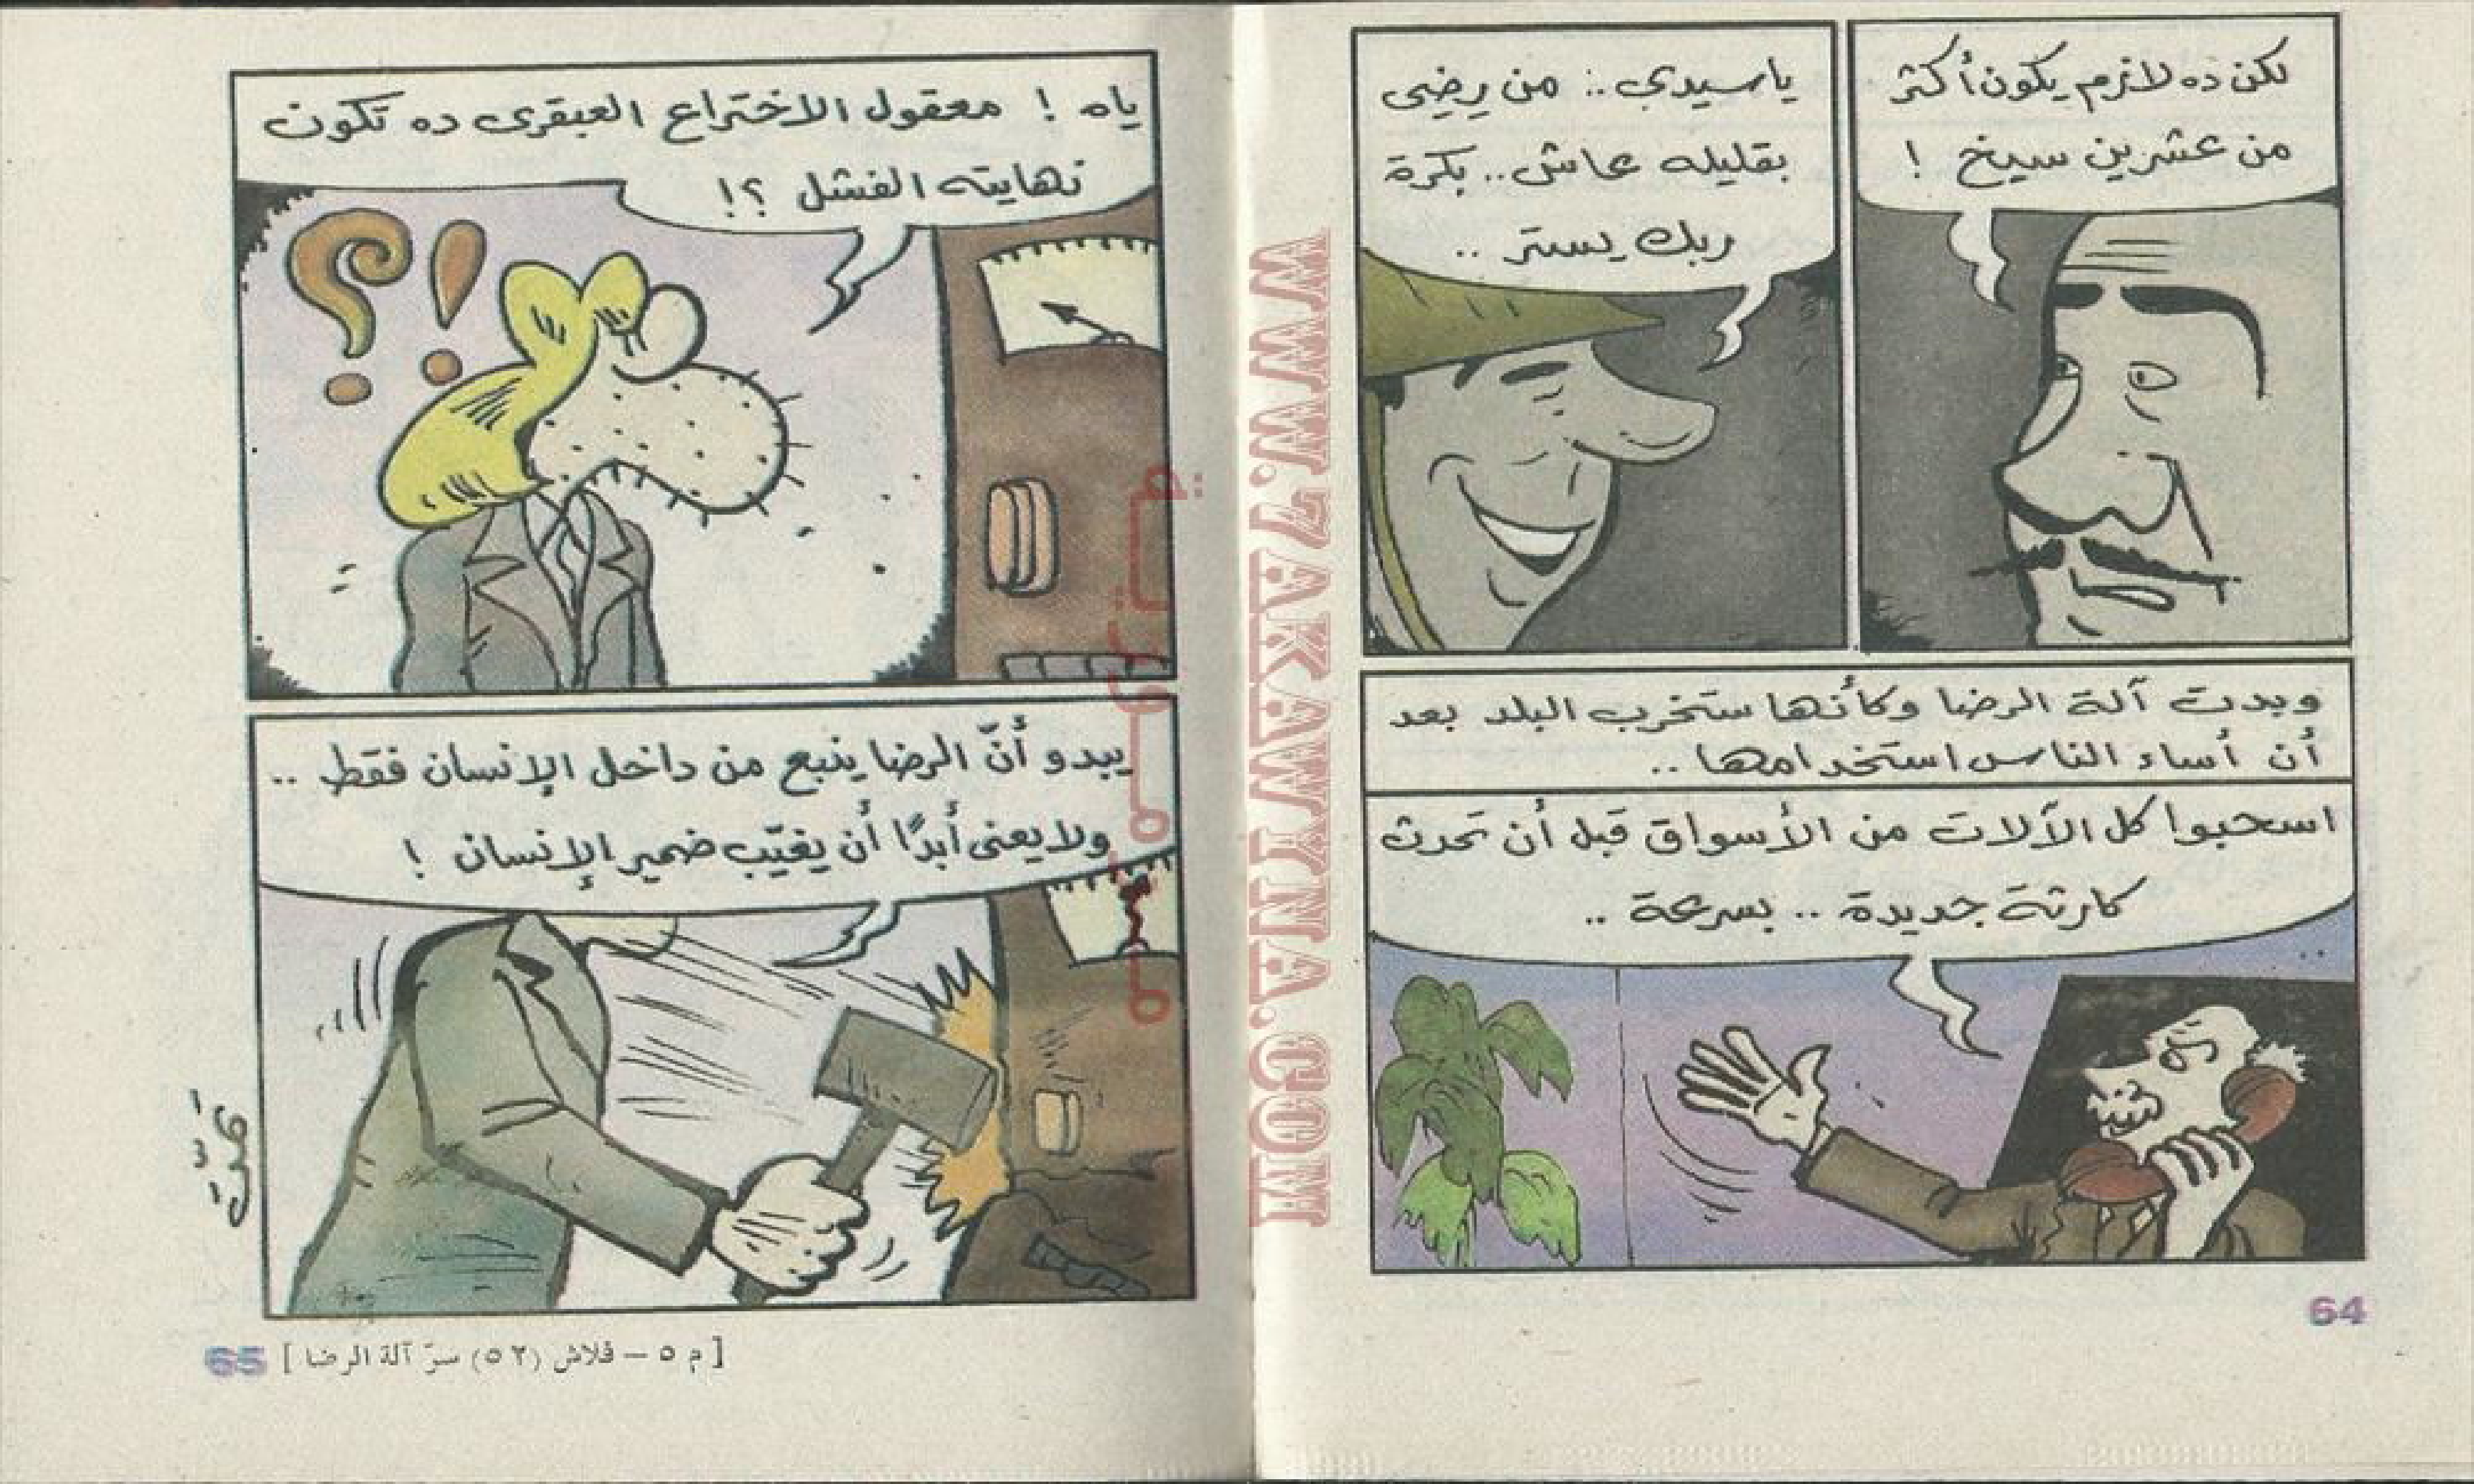 لكن ده لازم يكون أكثر
من عشرين سيخ !
ياسيدى .. من رِضِى
بقليله عاش .. بكرة
ربك يستر ..
وبدت آلة الرضا وكأنها ستخرب البلد بعد
أن أساء الناس استخدامها ..
اسحبوا كل الآلات من الأسواق قبل أن تحدث
كارثة جديدة .. بسرعة ..
64
ياه ! معقول الاختراع العبقرى ده تكون
نهايته الفشل ؟!
؟!
يبدو أنّ الرضا ينبع من داخل الإنسان فقط ..
ولا يعنى أبدًا أن يغيّب ضمير الإنسان !
65
[ م ٥ – فلاش (٥٢) سرّ آلة الرضا ]
WWW.ZAKAWJINA.COM